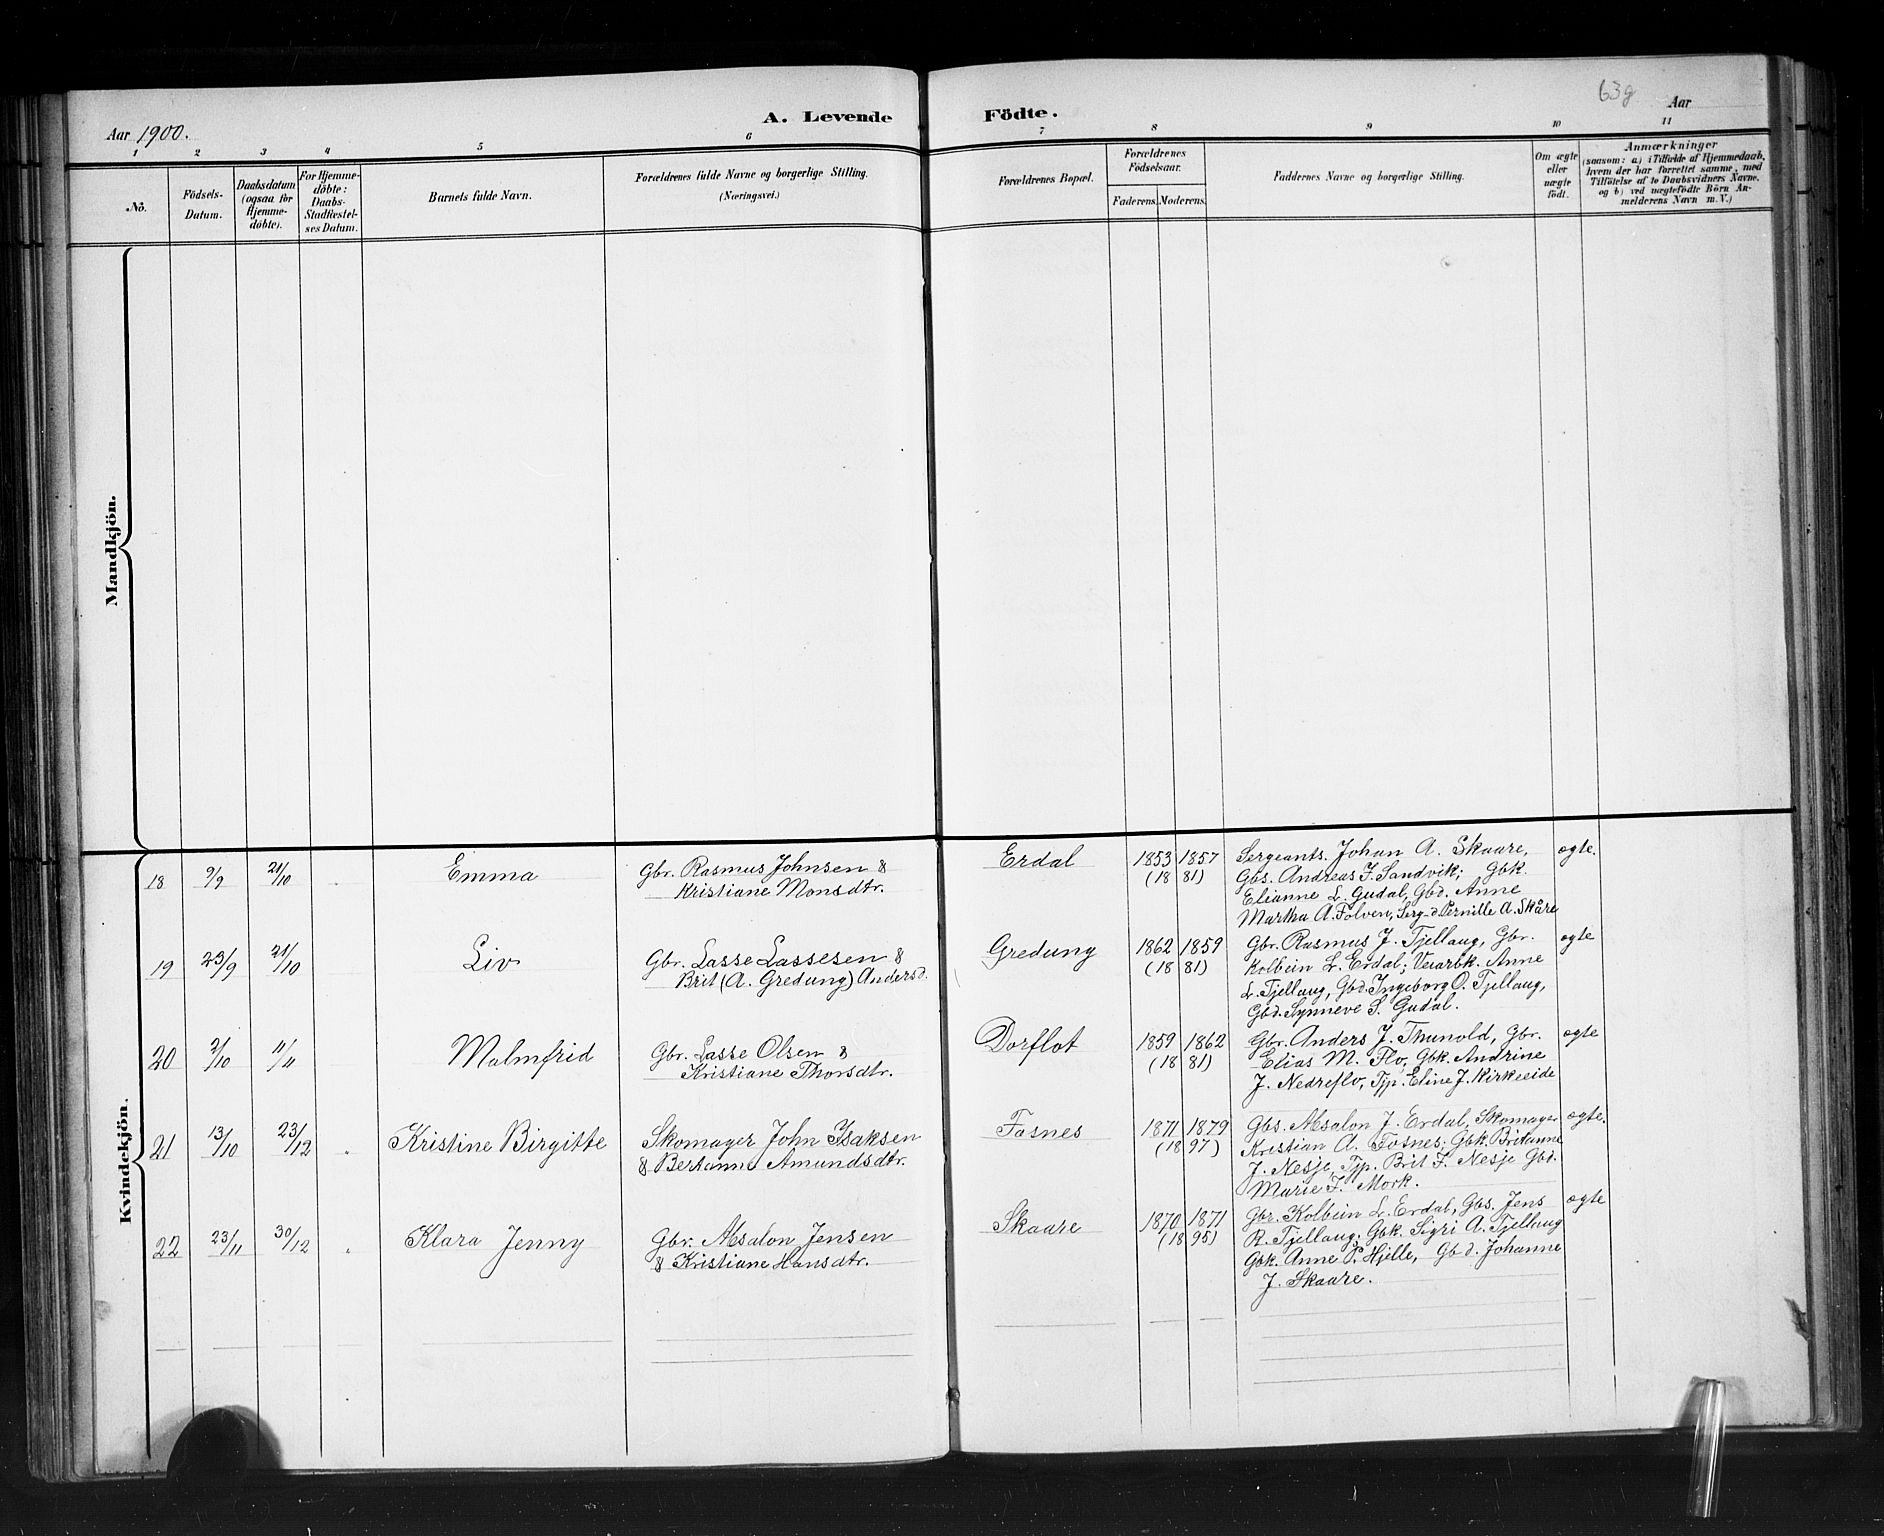 63g
Aar 1900.
A. Levende Födte.
Aar
1 2 3 4 5 6 7 8 9 10 11
No.
Födsels-
Datum.
Daabsdatum
(ogsaa for
Hjemme-
döbte).
For Hjemme-
döbte:
Daabs-
Stadfæstel-
ses Datum.
Barnets fulde Navn.
Forældrenes fulde Navne og borgerlige Stilling.
(Næringsvei.)
Forældrenes Bopæl.
Forældrenes
Födselsaar.
Faderens. Moderens.
Faddernes Navne og borgerlige Stilling.
Om ægte
eller
uægte
födt.
Anmærkninger
(saasom: a) i Tilfælde af Hjemmedaab,
hvem der har forrettet samme, med
Tilföielse af to Daabsvidners Navne,
og b) ved uægtefödte Börn An-
melderens Navn m. V.)
Mandkjön.
Kvindekjön.
18 9/9 21/10 Emma Gbr. Rasmus Johnsen &
Kristiane Monsdtr.
Erdal 1853 1857
(18 81)
Sergeants. Johan A. Skaare,
Gbs. Andreas J. Sandvik; Gbk.
Elianne L. Gudal, Gbd. Anne
Martha A. Folven, Serg.d. Pernille A. Skåre
ægte.
19 23/9 21/10 Liv Gbr. Lasse Lassesen &
Brit (A. Gredung) Andersd.
Gredung 1862 1859
(18 81)
Gbr. Rasmus J. Tjellaug, Gbr.
Kolbein L. Erdal; Veiarbk. Anne
L. Tjellaug, Gbd. Ingeborg O. Tjellaug,
Gbd. Synneve S. Gudal.
ægte
20 2/10 11/11 Malmfrid Gbr. Lasse Olsen &
Kristiane Thorsdtr.
Dorflot 1859 1862
(18 81)
Gbr. Anders J. Thunold, Gbr.
Elias M. Flo, Gbk. Andrine
J. Nedreflo, Tjp. Eline J. Kirkeeide
ægte
21 13/10 23/12 Kristine Birgitte Skomager John Isaksen
& Bertanne Amundsdtr.
Fosnes 1871 1879
(18 97)
Gbs. Absalon J. Erdal, Skomager
Kristian A. Fosnes; Gbk. Britanne
J. Nesje, Tjp. Brit F. Nesje Gbd.
Marie F. Mork.
ægte.
22 23/11 30/12 Klara Jenny Gbr. Absalon Jensen
& Kristiane Hansdtr.
Skaare 1870 1871
(18 95)
Gbr. Kolbein L. Erdal, Gbs. Jens
R. Tjellaug; Gbk. Sigri A. Tjellaug
Gbk. Anne P. Hjelle, Gbd. Johanne
J. Skaare.
ægte